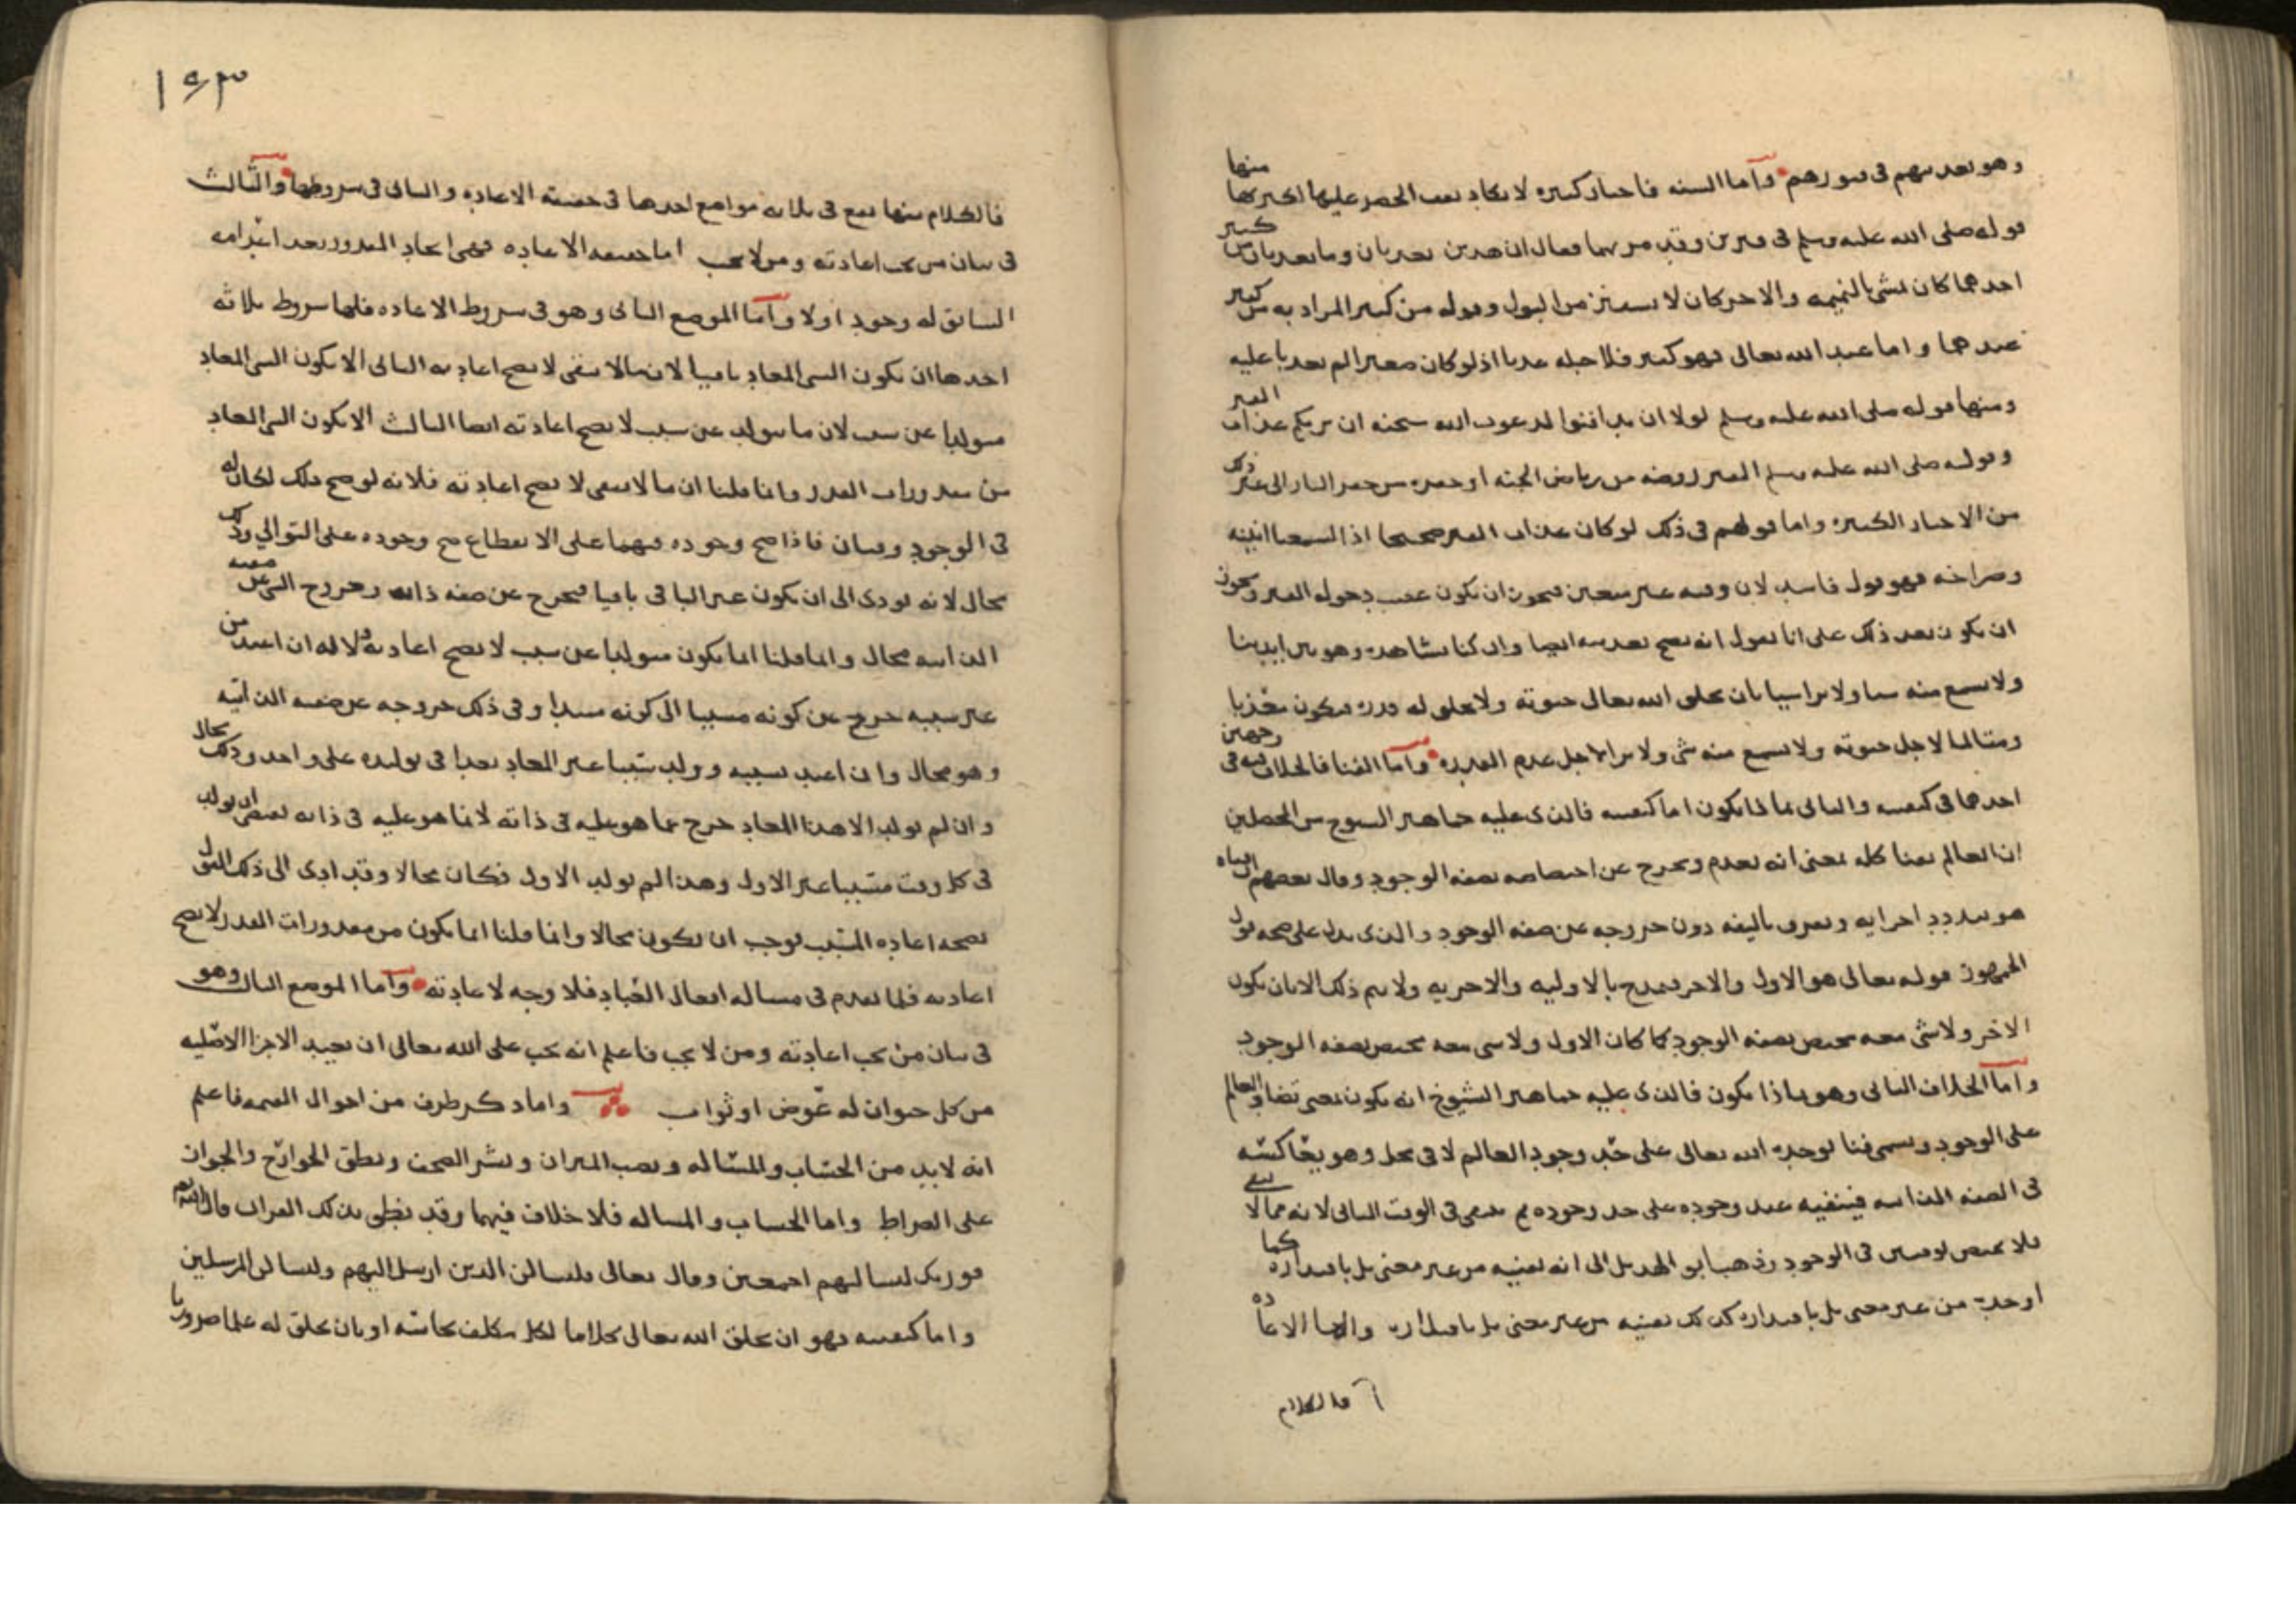 وهو تعذيبهم في قبورهم وأما السنة فاخبار كثيره لا يكاد يعد الحصر عليها لكثرتها منها
قوله صلى الله عليه وسلم في قبرين وقد مر بهما فقال ان هذين يعذبان وما يعذبان من كبير
احدهما كان يمشي بالنميمه والاخر كان لا يستنزه من البول وقوله من كبير المراد به من كبير
عندهما واما عند الله تعالى فهو كبير فلاجله عذبا اذ لو كان صغيرا لم يعذبا عليه
ومنها قوله صلى الله عليه وسلم لولا ان تدافنوا لدعوت الله سبحنه ان يريكم عذاب القبر
وقوله صلى الله عليه وسلم القبر روضه من رياض الجنه او حفره من حفر النار الى غير ذلك
من الاخبار الكثيره واما قولهم في ذلك لو كان عذاب القبر صحيحا اذا لسمعنا انينه
وصراخه فهو قول فاسد لان وقته غير متعين فيجوز ان يكون عقيب دخوله القبر ويجوز
ان يكون بعد ذلك على انا نقول انه يصح تعذيبه ايضا وان كنا نشاهده وهو بين ايدينا
ولا نسمع منه شيا ولا يرانا بان يخلق الله تعالى حيوته ولا يخلق له قدره فيكون معذبا
ومتالما لاجل حيوته ولا يسمع منه شي ولا يرا لاجل عدم القدره وأما الفنا فالخلاف فيه في وجهين
احدهما في كيفيته والثاني بماذا يكون اما كيفيته فالذي عليه جماهير الشيوخ من المحصلين
ان العالم يفنا كله بمعنى انه يعدم ويخرج عن اختصاصه بصفه الوجود وقال بعضهم افناه
هو تبديد اجزايه وتفريق تاليفه دون خروجه عن صفه الوجود والذي يدل على صحه قول
الجمهور قوله تعالى هو الاول والاخر فتمدح بالاوليه والاخريه ولا يتم ذلك الا بان يكون
الاخر ولا شي معه مختص بصفه الوجود كما كان الاول ولا شي معه مختص بصفه الوجود
وأما الخلاف الثاني وهو بماذا يكون فالذي عليه جماهير الشيوخ انه يكون بمعنى تضاد العالم
على الوجود ويسمى فنا يوجده الله تعالى على حد وجود العالم لا في محل وهو يعاكسه
في الصفه الذاتيه فينفيه عند وجوده على حد وجوده ثم ينتفي في الوقت الثاني لانه مما لا يبقى
فلا يختص بوقتين في الوجود وذهب ابو الهذيل الى انه يفنيه من غير معنى بل باقتداره كما
اوجده من غير معنى بل باقتداره كذلك يفنيه من غير معنى بل باقتداره واما الاعاده
فالكلام
١٥٣
فالكلام منها يقع في ثلاثه مواضع احدها في حقيقه الاعاده والثاني في شروطها والثالث
في بيان من يجب اعادته ومن لا يجب اما حقيقه الاعاده فهي ايجاد المقدور بعد اعدامه
السابق له وجود اولا وأما الموضع الثاني وهو في شروط الاعاده فلها شروط ثلاثه
احدها ان يكون الشي المعاد باقيا لان ما لا يبقى لا يصح اعادته الثاني الا يكون الشي المعاد
متولدا عن سبب لان ما يتولد عن سبب لا يصح اعادته ايضا الثالث الا يكون الشي المعاد
من مقدورات القدر وانما قلنا ان ما لا يبقى لا يصح اعادته فلانه لو صح ذلك لكان له
في الوجود وقتان فاذا صح وجوده فيهما على الانقطاع صح وجوده على التوالي وذلك
محال لانه يودي الى ان يكون غير الباقي باقيا فيخرج عن صفه ذاته وخروج الشي عن صفته
الذاتيه محال وانما قلنا انما يكون متولدا عن سبب لا يصح اعادته فلانه ان اعيد من
غير سببه خرج عن كونه مسببا الى كونه مبتدا وفي ذلك خروجه عن صفته الذاتيه
وهو محال وان اعيد بسببه وولد مسببا غير المعاد تعدا في توليده على واحد وذلك محال
وان لم يولد الا هذا المعاد خرج عما هو عليه في ذاته لان ما هو عليه في ذاته يقتضي ان يولد
في كل وقت مسببا غير الاول وهذا لم يولد الا الاول فكان محالا وقد ادى الى ذلك القول
بصحه اعاده المسبب فوجب ان يكون محالا وانما قلنا انما يكون من مقدورات القدر لا يصح
اعادته فلما تقدم في مساله افعال العباد فلا وجه لاعادته وأما الموضع الثالث وهو
في بيان من يجب اعادته ومن لا يجب فاعلم انه يجب على الله تعالى ان يعيد الاجزا الاصليه
من كل حيوان له عوض او ثواب واما ذكر طرف من احوال القيمه فاعلم
انه لا بد من الحساب والمسأله ونصب الميزان ونشر الصحف ونطق الجوارح والجواز
على الصراط واما الحساب والمساله فلا خلاف فيهما وقد نطق بذلك القران قال الله تعالى
فوربك لنسالنهم اجمعين وقال تعالى فلنسالن الذين ارسل اليهم ولنسالن المرسلين
واما كيفيته فهو ان يخلق الله تعالى كلاما لكل مكلف يحاسبه او بان يخلق له علما ضروريا